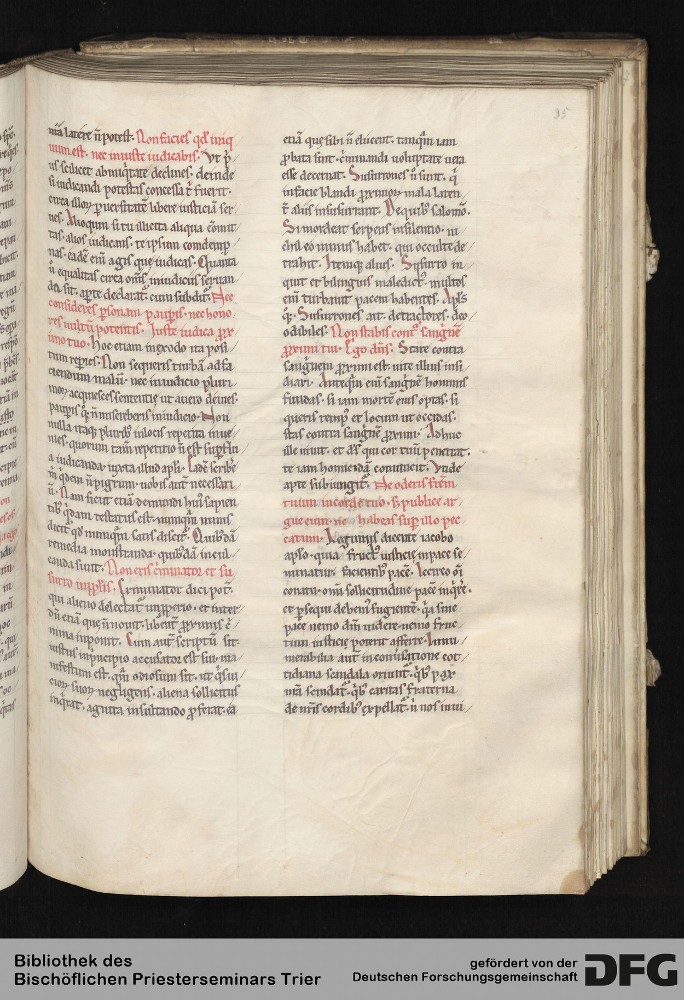 35
latere n̄ potest. Non facies qd iniq
uum est. nec iniuste iudicabis. Vt p̄
us scilicet ab iniq̇tate declines. deinde
si iudicandi potestas concessa t̄ fuerit.
circa illoꝝ ꝑuersitatē libere iusticiā ser
Alioquin si tu illicita aliqua
tas. alios iudicans. te ipsum condemp
nas. eadē eni agis que iudicas. Quanta
ū equalitas circa om̄s in iudiciis seruan
da sit. aperte declarat. cum subdit. Nec
consideres ꝑsonam pauꝑis. nec hono
res uultū potentis. Iuste iudica ꝓx
imo tuo. Hoc etiam in exodo ita posi
tum repies. Non sequeris turbā ad fa
ciendum malū. nec in iudicio pluri
moꝝ acquiesces sententię ut a uero deuies.
pauꝑis qq̇ n̄ misereberis in iudicio. Non
nulla itaq; pluribꝰ in locis repetita inue
nies. quorum tam̄ repetitio n̄ est suꝑflu
a iudicanda. iuxta illud apl̄i. Eadē scribe
n̄. Nam sicut etiā de mundi huiꝰ sapien
tibꝰ q̇dam testatus est. numqm̄ nimis
dicit qd numqm̄ satis discit. Quibꝰdā
remedia monstranda. quibꝰdā incul
canda sunt. Non eris c̄minator et su
surro in ppl̄is. Criminator dici pot.
qui alieno delectat uituꝑio. et inter
dū etiā que n̄ nouit. libent ꝓximis c̄
mina inponit. Cum aut scriptū sit
iustus in principio accusator est sui. ma
nifestum est. qm̄ odiosum sit. ut q̇ sui
cioꝝ suoꝝ negligens. aliena sollicitus
inq̇rat. agnita insultando ꝓferat. ea
etiā que sibi n̄ elucent. tanqm̄ iam
ꝓbata sint. c̄minandi uoluptate uera
esse decernat. Susurrones n̄ sunt. q̇
in facie blandi ꝓximoꝝ mala laten
t̄ aliis insusurrant. De quibꝰ salomō.
Si mordeat serpens in silentio. ni
chil eo minus habet. qui occulte de
trahit. Itemq; alius. Susurro in
quit et bilinguis maledictꝰ. multos
eni turbauit pacem habentes. Apl̄s
qq̇. Susurrones ait. detractores. deo
odibiles. Non stabis cont̄ sangnē
ꝓximi tui. Ego dn̄s. Stare contra
sanguem ꝓximi est. uite illius insi
diari. Anteqū eni sangnē hominis
fundas. si iam mortē eius optas. si
queris tempꝰ et locum ut occidas.
stas contra sangnē ꝓximi. Adhuc
ille uiuit. et d̄s qui cor tuū penetrat.
te iam homicidā conuincit. Vnde
apte subiungit. Ne oderis frēm
tuum in corde tuo. s; publice ar
gue eum. ne habeas suꝑ illo pec
catum. Legimus dicente iacobo
apl̄o. quia fructꝰ iusticię in pace se
minatur. facientibꝰ pacē. Necesse
conatu. omī sollicitudine pacē inq̇re.
et ꝑsequi debemꝰ fugiente. q̇a sine
pace nemo dm̄ uidere. nemo fruc
tum iusticię poterit afferre. Innu
merabilia aut in conuersatione cot
tidiana scandala oriunt. q̇bꝰ pax
nr̄a scindat. q̇bꝰ caritas fraterna
de nr̄is cordibꝰ expellat. n̄ nos inui
Bibliothek des
Bischöflichen Priesterseminars Trier
gefördert von der
Deutschen Forschungsgemeinschaft
DFG